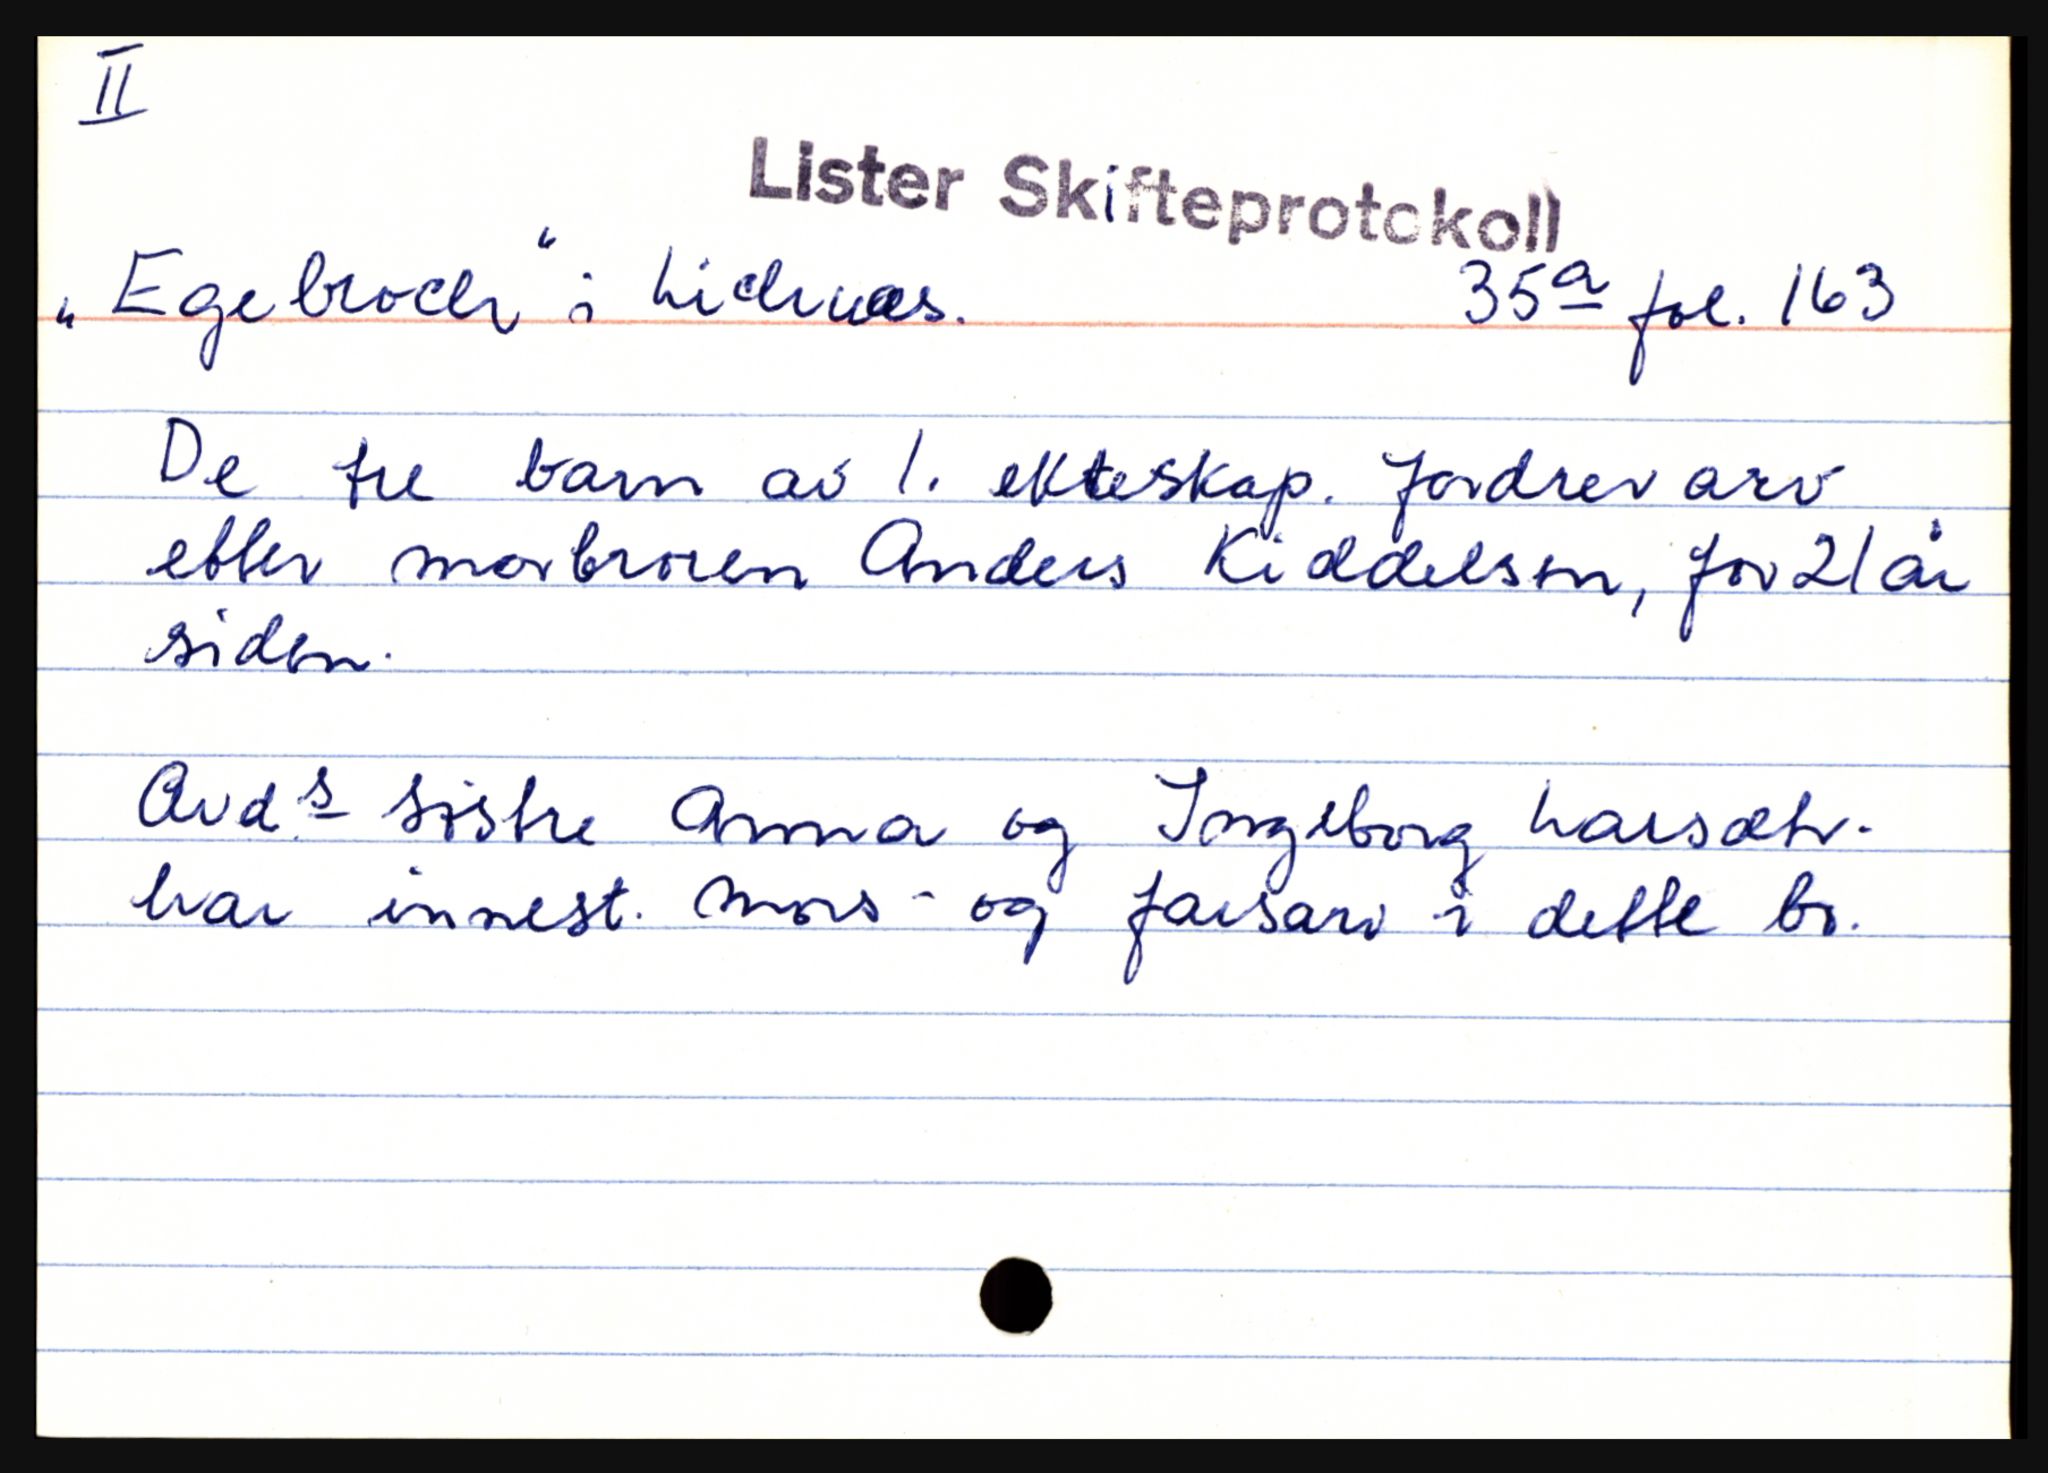 II
Lister Skifteprotokoll
„Egebrock“ i Lidnæs. 35a fol. 163
De tre barn av 1. ekteskap. fordrer arv
etter morbroren Anders Kiddelsen, for 21 år
siden.
Avd.s søstre Anna og Ingeborg Larsdtr.
har innest. mors- og farsarv i dette bo.